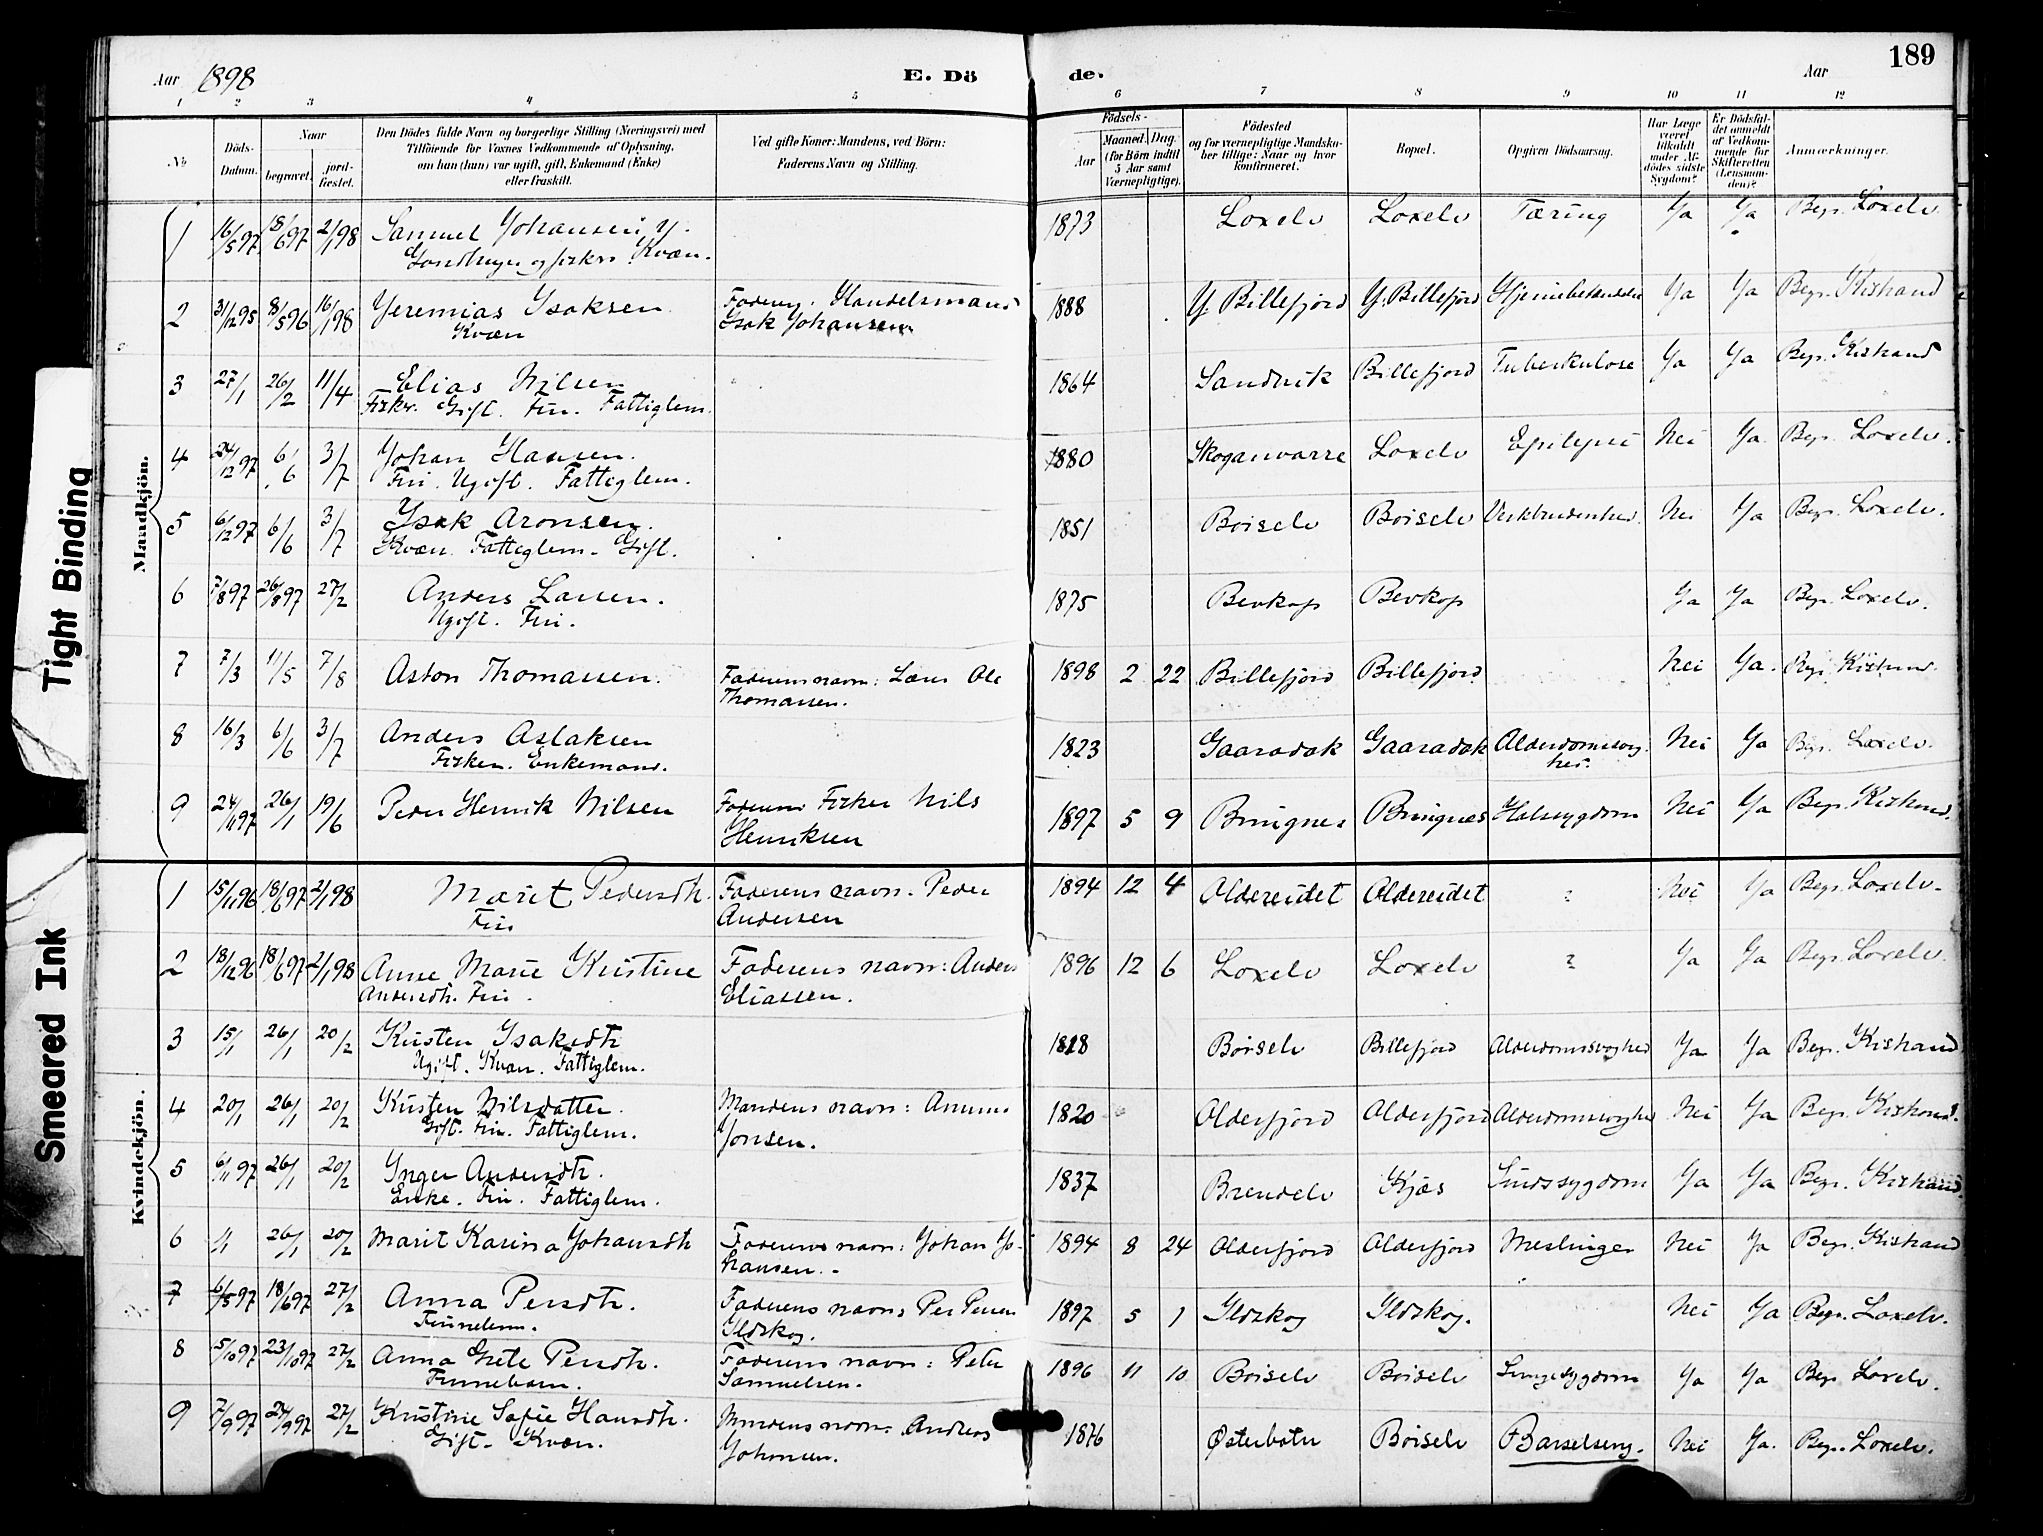 189
Aar 1898 E. Döde. Aar
1 2 3 4 5 6 7 8 9 10 11 12
No
Döds-Datum.
Naar
begravet.
jord-fæstet.
Den Dödes fulde Navn og borgerlige Stilling (Næringsvei) med
Tilföiende for Voxnes Vedkommende af Oplysning,
om han (hun) var ugift, gift, Enkemand (Enke)
eller fraskilt.
Ved gifte Koner: Mandens, ved Börn:
Faderens Navn og Stilling.
Födsels-
Aar
Maaned. Dag
(for Börn indtil
5 Aar samt
Værnepligtige).
Födested
og for værnepligtige Mandska-
ber tillige: Naar og hvor
konfirmeret.
Bopæl.
Opgiven Dödsaarsag.
Har Læge
været
tilkaldt
under Af-
dödes sidste
Sygdom?
Er Dödsfal-
det anmeldt
af Vedkom-
mende for
Skifteretten
(Lensman-
den)?
Anmærkninger.
Mandkjön.
1 16/5 97 18/6 97 2/1 98 Samuel Johansen, 1873 Loxelv Loxelv Tæring Ja Ja Begr. Loxelv
og fisker. Kvæn.
2 31/12 95 8/5 96 16/1 98 Jeremias Isaksen Faderen. Handelsmand 1888 Y. Billefjord Y. Billefjord Hjernebetændelse Ja Ja Begr. Kistrand
Kvæn Isak Johansen
3 27/1 26/2 11/4 Elias Nilsen 1864 Sandvik Billefjord Tuberkulose Ja Ja Begr. Kistrand
Fisker. Gift. Fin. Fattiglem.
4 24/12 97 6/6 3/7 Johan Hansen. 1880 Skoganvarre Loxelv Epilepsi Nei Ja Begr. Loxelv.
Fin. Ugift. Fattiglem.
5 6/12 97 6/6 3/7 Isak Aronsen. 1851 Börselv Börselv Nei Ja Begr. Loxelv.
Kvæn. Fattiglem. Gift.
6 7/8 97 26/8 97 27/2 Anders Larsen. 1875 Bevkop Bevkop Ja Ja Begr. Loxelv.
Ugift. Fin.
7 7/3 11/5 7/8 Aston Thomassen. Faderens navn: Lars Ole 1898 2 22 Billefjord Billefjord Nei Ja. Begr. Kistrand.
Thomassen.
8 16/3 6/6 3/7 Anders Aslaksen 1823 Gaaradak Gaaradak Alderdomssvag- Nei Ja Begr. Loxelv.
Fisker. Enkemand. hed.
9 24/11 97 26/1 19/6 Peder Henrik Nilsen Faderens Fisker Nils 1897 5 9 Bringnes Bringnes Halssygdom Nei Ja Begr. Kistrand.
Henriksen
Kvindekjön.
1 15/11 96 18/6 97 2/1 98 Marit Pedersdtr. Faderens navn: Peder 1894 12 4 Aldereidet Aldereidet ? Nei Ja Begr. Loxelv.
Fin Andersen
2 18/12 96 18/6 97 2/1 98 Anne Marie Kristine Faderens navn: Anders 1896 12 6 Loxelv Loxelv ? Ja Ja Begr. Loxelv.
Andersdtr. Fin. Eliassen.
3 15/1 26/1 20/2 Kirsten Isaksdtr 1818 Börselv Billefjord Alderdomssvaghed Ja Ja Begr. Kistrand
Ugift. Kvæn. Fattiglem.
4 20/1 26/1 20/2 Kirsten Nilsdatter. Mandens navn: 1820 Alderfjord Alderfjord Alderdomssvaghed Nei Ja Begr. Kistrand.
Gift. Fin. Fattiglem. Jonsen.
5 6/11 97 26/1 20/2 Inger Andersdtr. 1837 Brendelv Kjæs Sindssygdom Ja Ja Begr. Kistrand.
Enke. Fin. Fattiglem.
6 26/1 20/2 Marit Karina Johansdtr Faderens navn: Johan Jo- 1894 8 24 Alderfjord Alderfjord Meslinger Nei Ja Begr. Kistrand
hansen.
7 6/5 97 18/6 97 27/2 Anna Persdtr. Faderens navn: Per Persen 1897 5 1 Ildskog Ildskog. Nei Ja Begr. Loxelv.
Finnebarn. Ildskog.
8 5/10 97 23/10 97 27/2 Anna Grete Persdtr. Faderens navn: Peter 1896 11 10 Börselv Börselv Lungesygdom Ja Ja Begr. Loxelv.
Finnebarn. Samuelsen.
9 7/9 97 24/9 97 27/2 Kristine Sofie Hansdtr. Mandens navn. Andreas 1876 Østerbotn Börselv Barselseng. Nei Ja. Begr. Loxelv.
Gift. Kvæn. Johansen.
Tight Binding
Smeared Ink